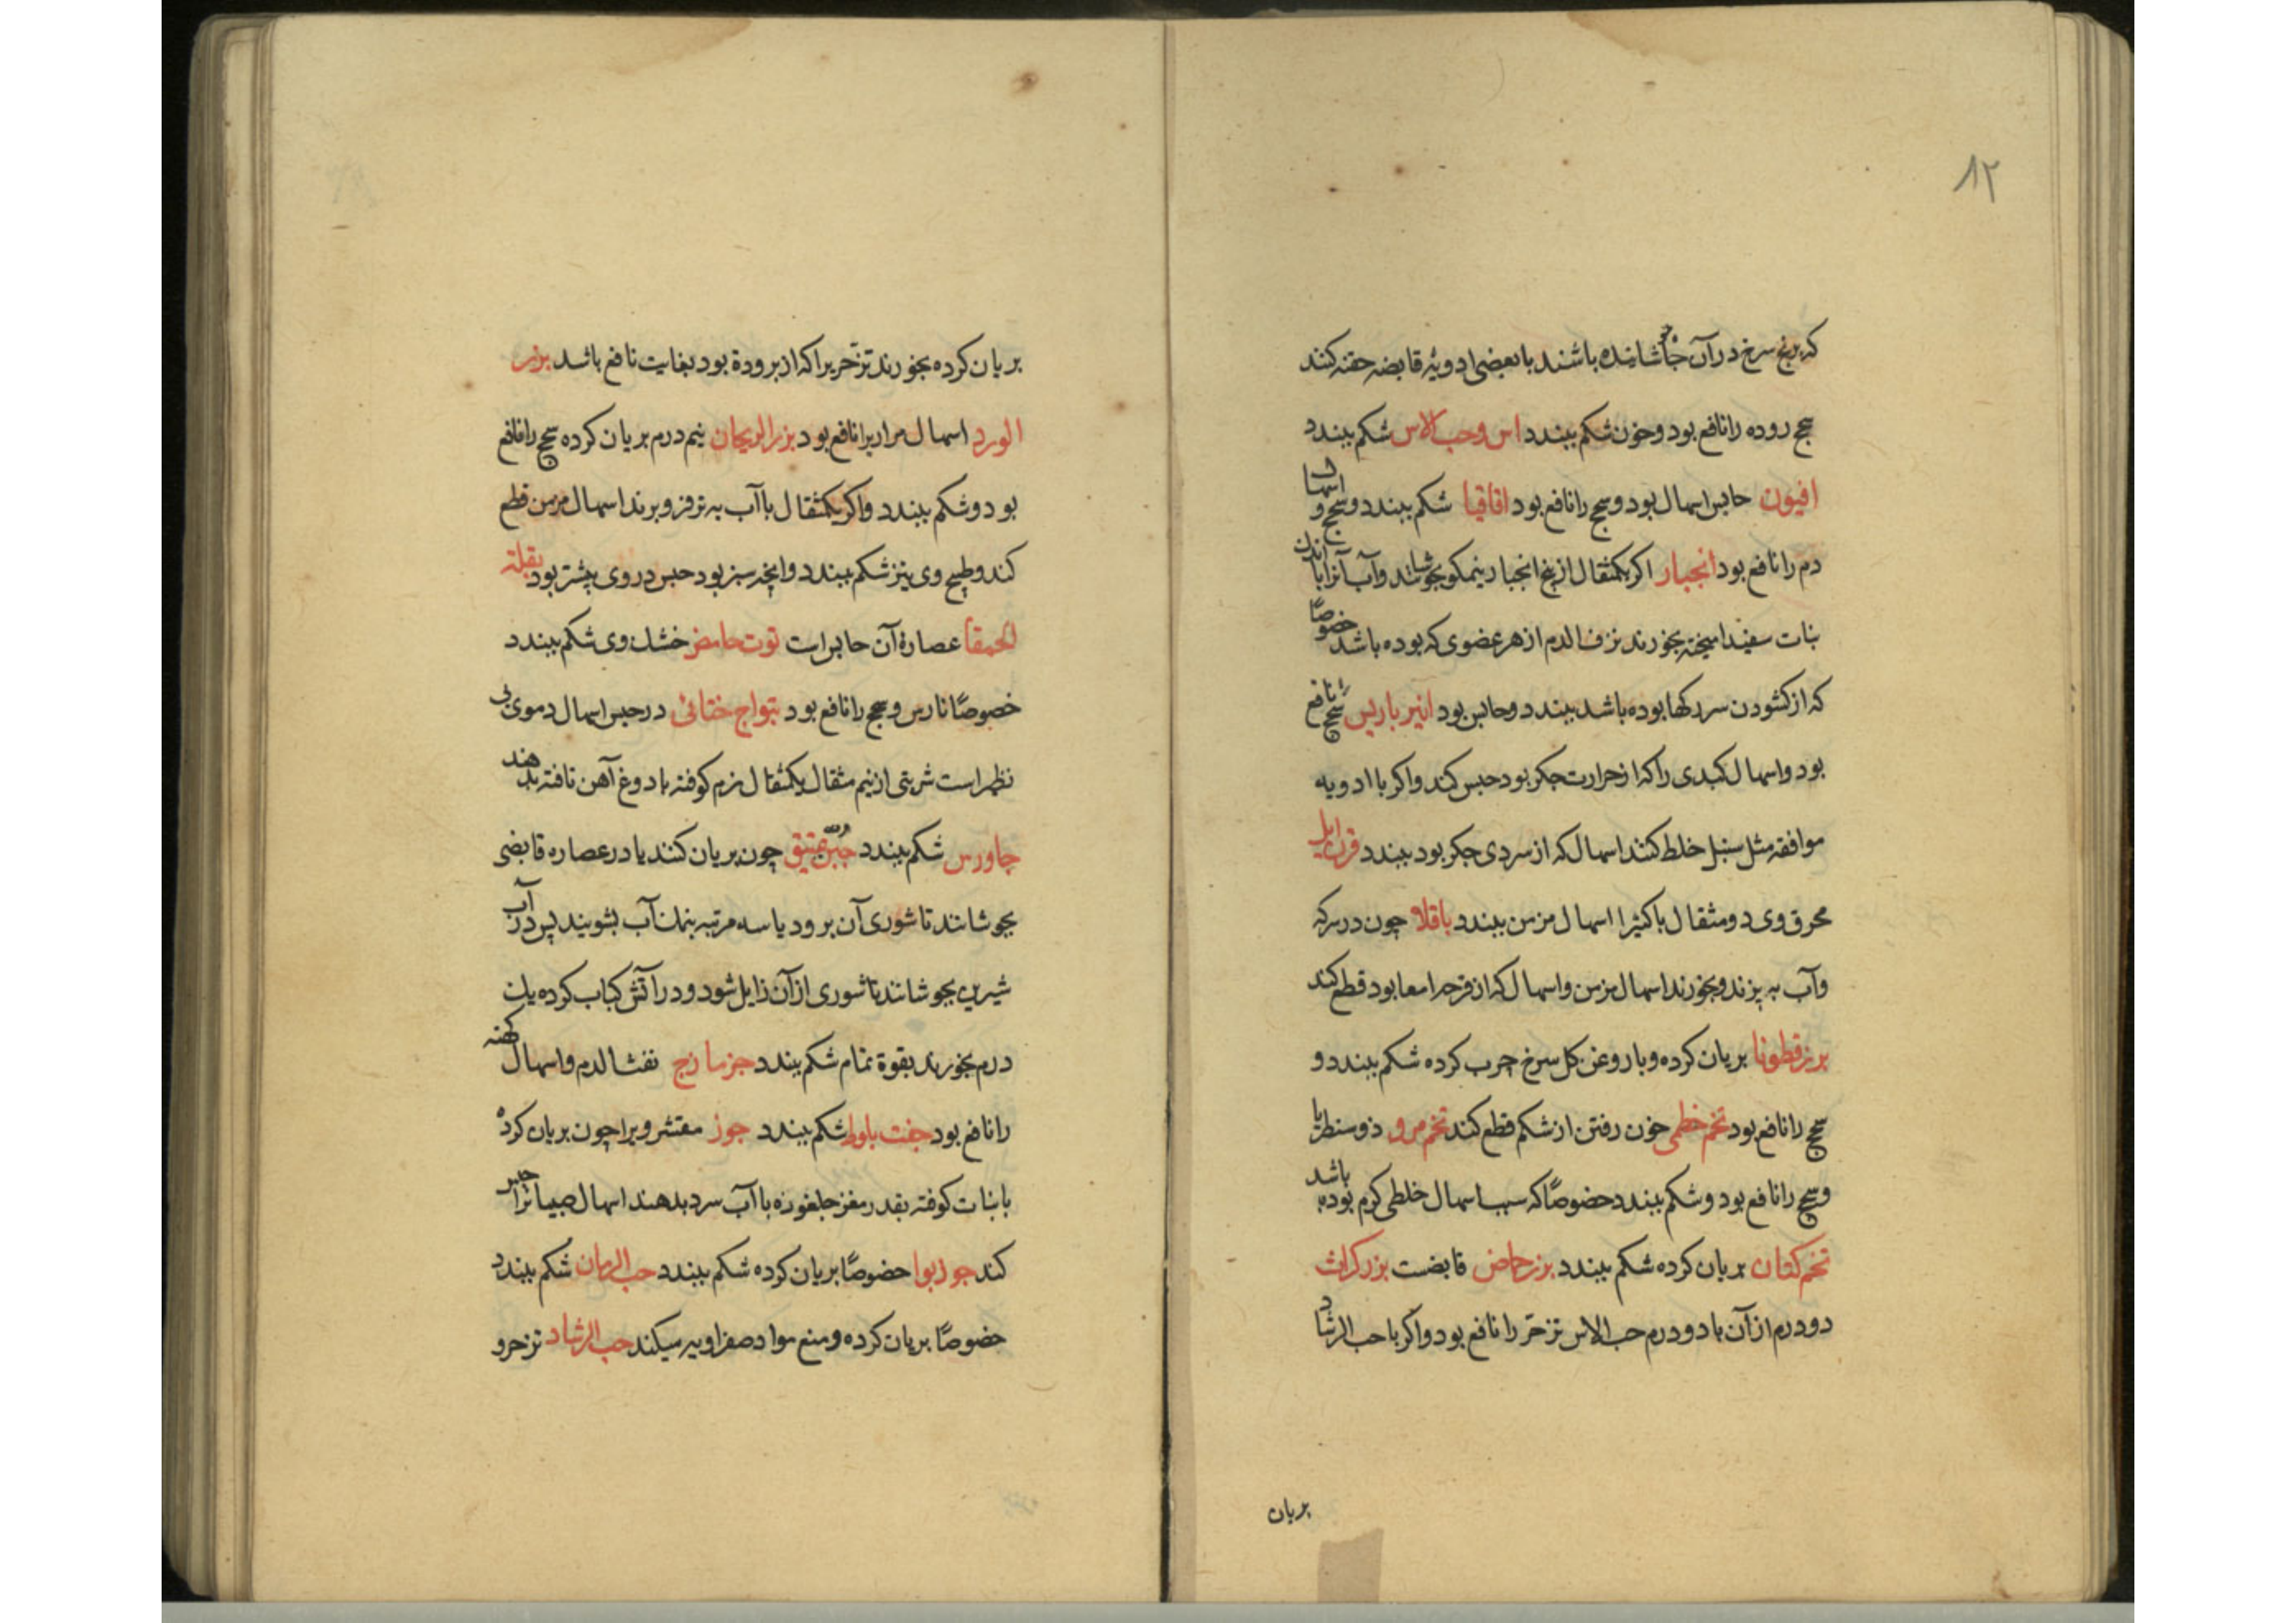 ۸۲
که برنج سرخ در آن جوشانیده باشند با بعضی ادویهٔ قابضه حقنه کنند
سحج روده را نافع بود و خون شکم ببندد اس وحب الاس شکم ببندد
افیون حابس اسهال بود و سحج را نافع بود اقاقیا شکم ببندد و سحج و اسهال
دم را نافع بود انجبار اکر یکمثقال از بیخ انجبار نیمکوب بجوشانند و آب آنرا با اندك
نبات سفید امیخته بخورند نزف الدم از هر عضوی که بوده باشد خصوصًا
که از کشودن سر رکها بوده باشد ببندد و حابس بود انبرباریس سحج را نافع
بود و اسهال کبدی را که از حرارت جکر بود حبس کند و اکر با ادویه
موافقه مثل سنبل خلط کنند اسهال که از سردی جکر بود ببندد قرن ایل
محرق وی دو مثقال با کثیرا اسهال مزمن ببندد باقلا چون در سرکه
و آب به پزند و بخورند اسهال مزمن و اسهال که از قرحه امعا بود قطع کند
بزرقطونا بریان کرده و با روغن کل سرخ چرب کرده شکم ببندد و
سحج را نافع بود تخم خطمی خون رفتن از شکم قطع کند تخم مرو ذوسنطاریا
و سحج را نافع بود و شکم ببندد خصوصًا که سبب اسهال خلطی کرم بوده باشد
تخم کتان بریان کرده شکم ببندد بزرحماض قابضست بزر کراث
دو درم از آن با دو درم حب الاس تزحّر را نافع بود و اکر با حب الرشاد
بریان
بریان کرده بخورند تزحّریرا که از برودة بود بغایت نافع باشد بزر
الورد اسهال مراریرا نافع بود بزرالریحان نیم درم بریان کرده سحج را نافع
بود و شکم ببندد و اکر یکمثقال با آب به ترفرو برند اسهال مزمن قطع
کند و طبیخ وی نیز شکم ببندد و انچه سبز بود حبس در وی بیشتر بود بقلة
الحمقا عصارهٔ آن حابس است توت حامض خشك وی شکم ببندد
خصوصًا نارس و سحج را نافع بود تیواج ختائی در حبس اسهال دموی بی
نظیر است شربتی از نیم مثقال یکمثقال نرم کوفته با دوغ آهن تافته بدهند
جاورس شکم ببندد جبن عتیق چون بریان کنند یا در عصاره قابضی
بجوشانند تا شوری آن برود یا سه مرتبه بنمك آب بشویند پس در آب
شیرین بجوشانند تا شوری از آن زایل شود و در آتش کباب کرده یك
درم بخورند بقوة تمام شکم ببندد جزمازج نفث الدم و اسهال کهنه
را نافع بود جفت بلوط شکم ببندد جوز مقشر ویرا چون بریان کرده
با نبات کوفته بقدر مغز جلغوزه با آب سرد بدهند اسهال صبیانرا حبس
کند جوزبوا خصوصًا بریان کرده شکم ببندد حب الرمان شکم ببندد
خصوصًا بریان کرده و منع مواد صفراویه میکند حب الرشاد تزحر و